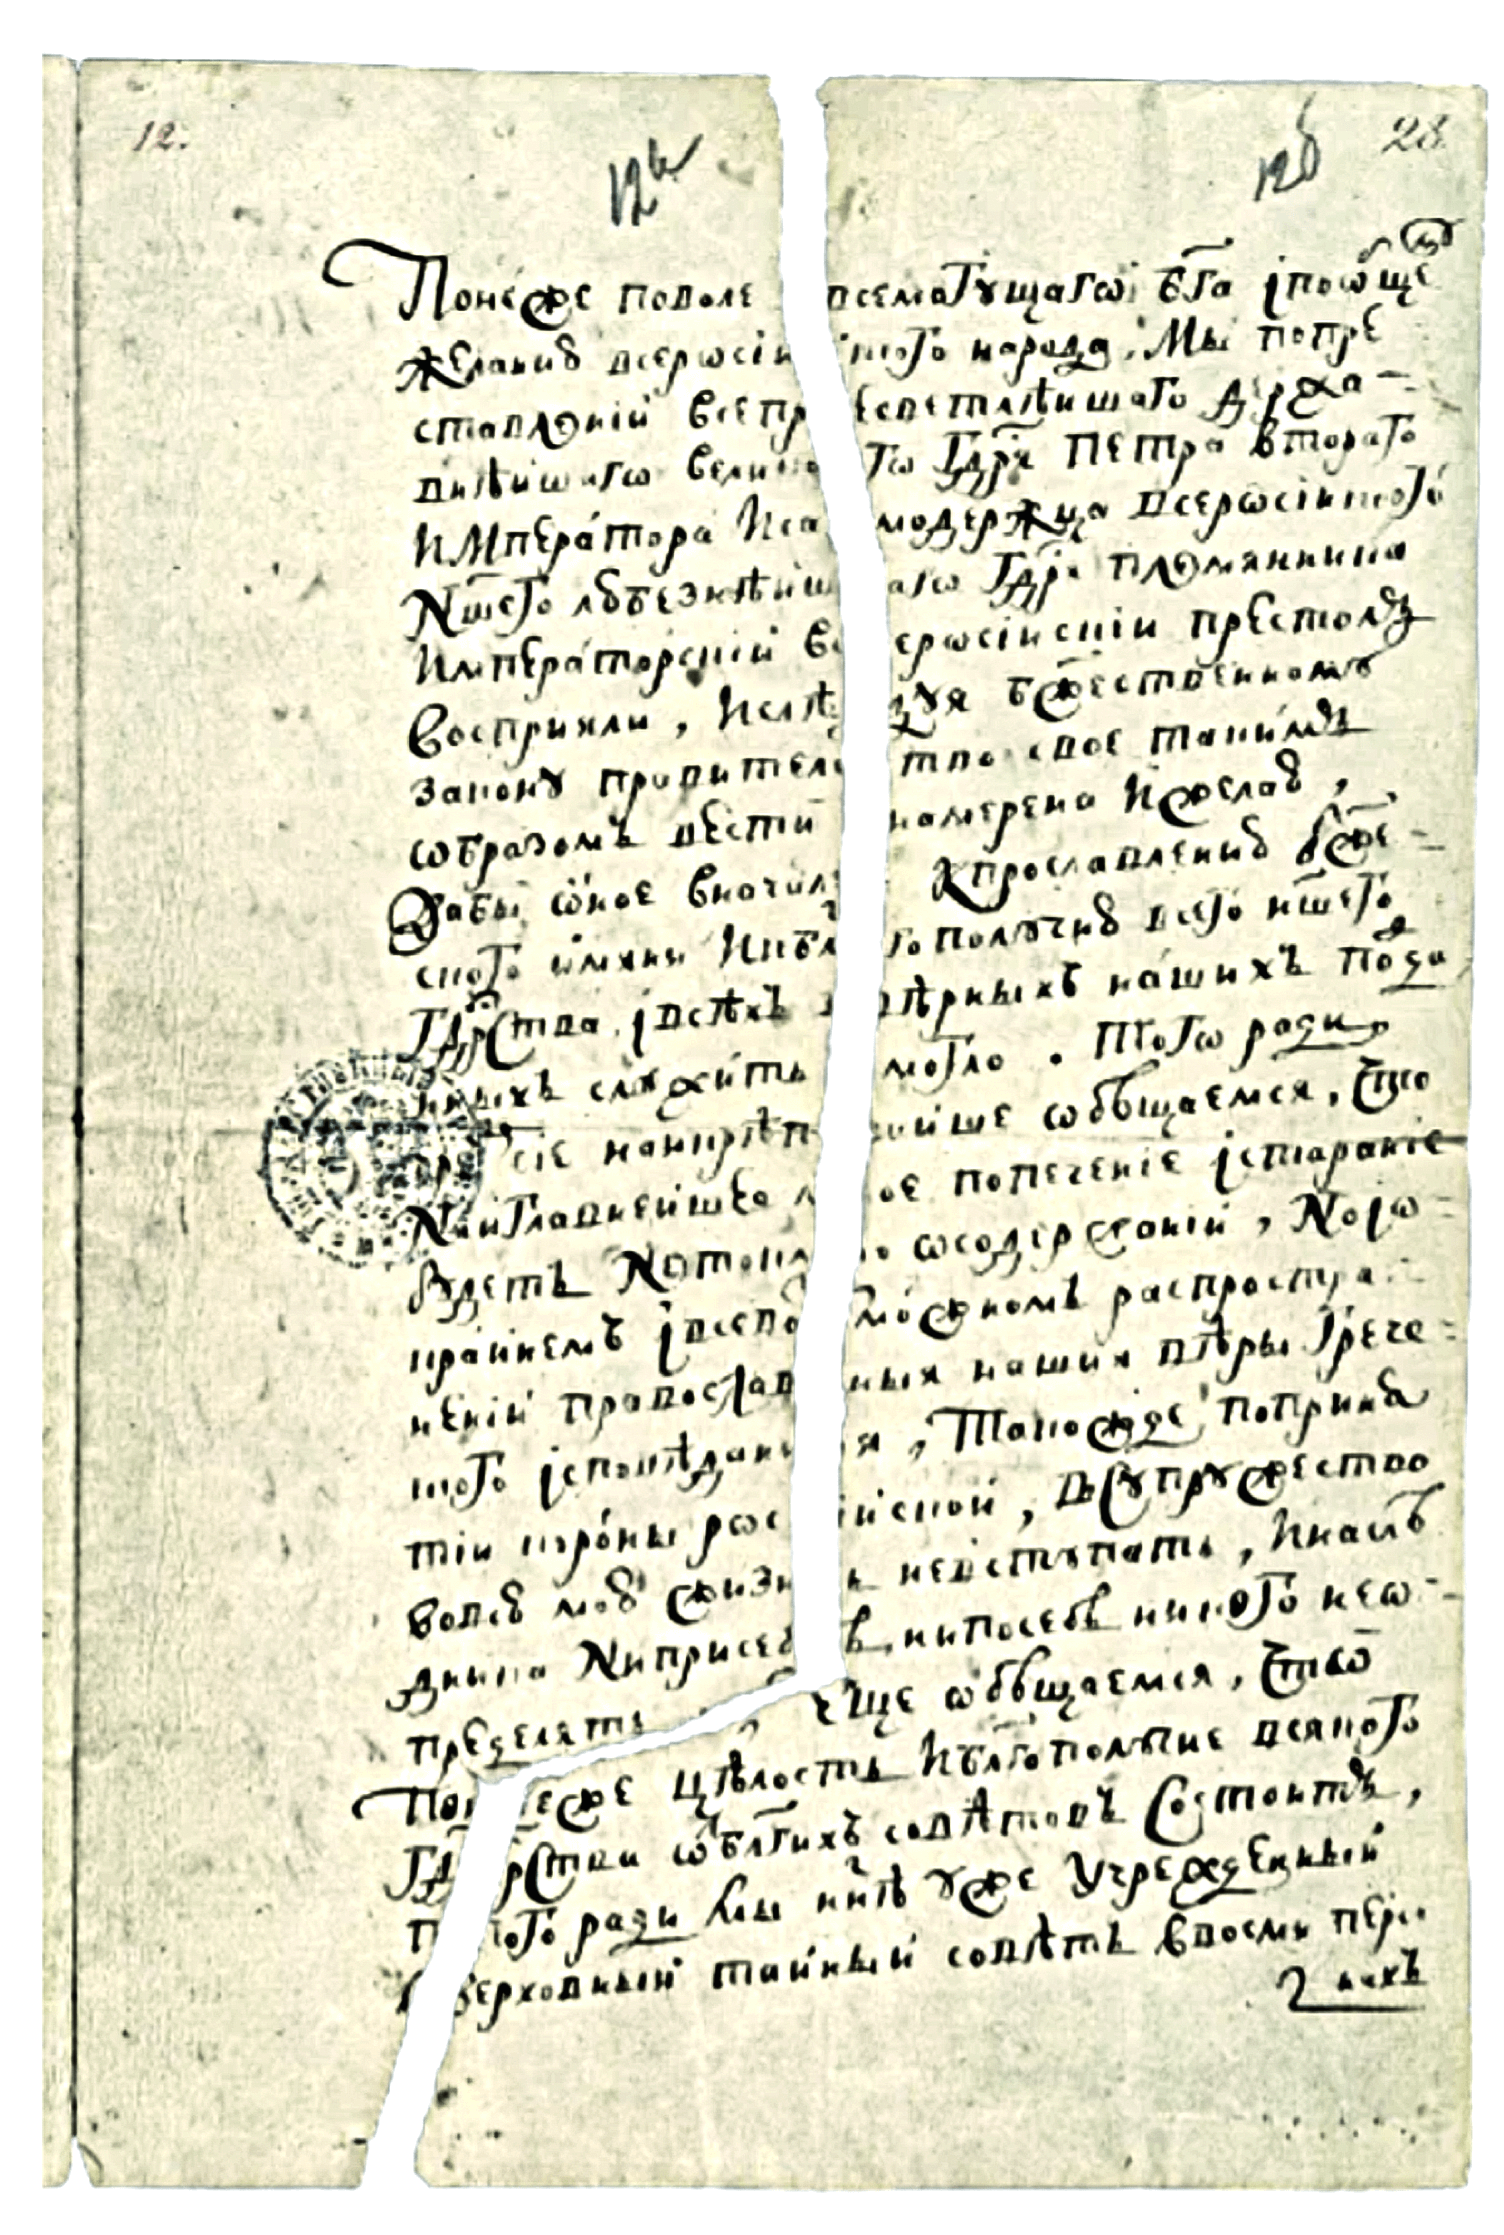 12.
12а
12б
28
Понеже поволе всемогущагѡ бга їпоѡбще
желанию всерѡсискаго народа, Мы попре
ставлениїи всепресветлѣишаго держа-
внѣишагѡ великогѡ Гдря Петра второго
Императора Исамодержца всерѡсиского
Ншего любезнѣйшагѡ Гдря племянника
Императорскии всерѡсиискии престолъ
восприяли, Ислѣдуя бжественному
закону правителство свое такимъ
ѡбразомъ вести намерена Ижелаю,
Дабы ѡное вначале кпрославлению бже-
ского имяни Икблгополучию всего ншего
Гдрства, їсвѣхъ вѣрныхъ нашихъ подда
нныхъ служить могло. Того ради
чрезъ сие наикрѣпчайше ѡбѣщаемся, что
Наиглавнейшее мое попечение їстарание
будетъ Нетокмо ѡсодержании, Ноїѡ-
крайнемъ їсевозможномъ распростра-
нении православныя нашия вѣры Грече-
ского їсповѣдания, Такожде попринѧ
тии короны росїиской, Всупружество
вовсю мою жизнь невступать, Инаслѣ-
дника Ниприсебѣ, нипосебѣ никого неѡ-
пределять еще ѡбѣщаемся, чтоѡ
Понеже цѣлость Иблгополучие всякого
Гдрства ѡблгихъ совѣтовъ Состоитъ,
Того ради Мы ннѣ уже Учрежденный
верховный тайный совѣтъ ввосми перс
нахъ